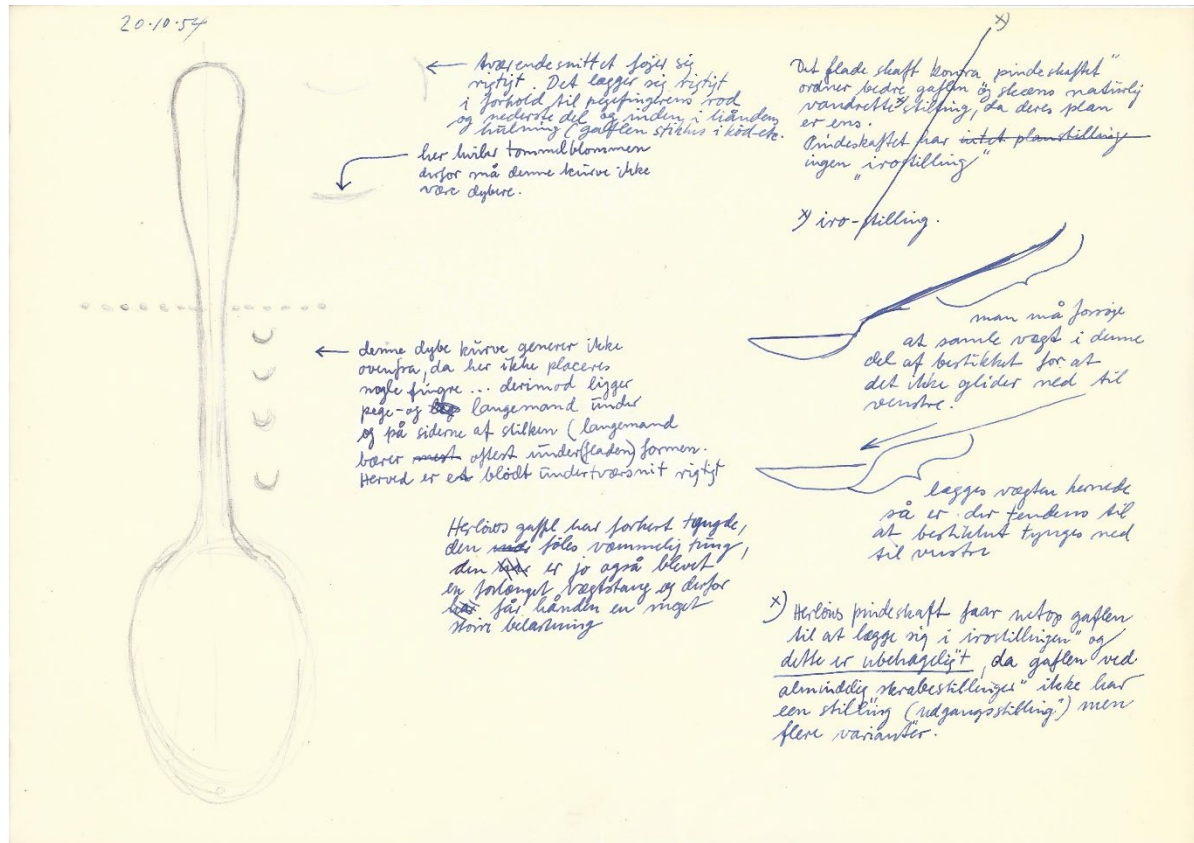 20·10·54
Tværendesnittet føjer sig
rigtigt. Det lægger sig rigtigt
i forhold til pegefingrens rod
og nederste del og inden i håndens
hulning (gaflen stikkes i kød etc.
her hviler tommelblommen
derfor må denne kurve ikke
være dybere.
denne dybe kurve generer ikke
ovenfra, da her ikke placeres
nogle fingre ... derimod ligger
pege- og langemand under
og på siderne af stilken (langemand
bærer mest oftest under(fladen) formen.
Herved er et blødt undertværsnit rigtigt
Herløws gaffel har forkert tyngde,
den føles væmmelig tung,
den er jo også blevet
en forlænget vægtstang og derfor
har får hånden en meget
større belastning
x)
Det flade skaft kontra "pindeskaftet"
ordner bedre gaflen og skeens naturlig
vandrette x) stilling, da deres plan
er ens.
Pindeskaftet har intet planstilling
ingen "irostilling"
x) iro-stilling.
man må forsøge
at samle vægt i denne
del af bestikket for at
det ikke glider ned til
venstre.
lægges vægten hernede
så er der tendens til
at bestikket tynges ned
til venstre
x) Herløws pindeskaft faar netop gaflen
til at lægge sig i "irostillingen" og
dette er ubehageligt, da gaflen ved
almindelig "skrabestillinger" ikke har
een stilling (udgangsstilling") men
flere varianter.